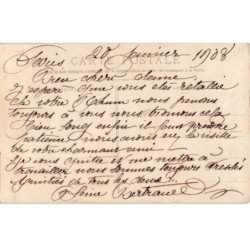 CARTE POSTALE
Paris 28 Janvier 1908
Bien chère Jeanne
J'espère que vous êtes rétablie
En votre nous pensons
toujours à vous nous trouvons cela
bien long enfin il faut prendre
patience nous avons eu la visite
de votre charmant ami
Je vous quitte et me mettre a
travailler nous sommes toujours pressés
Amitiés de tous les vous
Bertrand